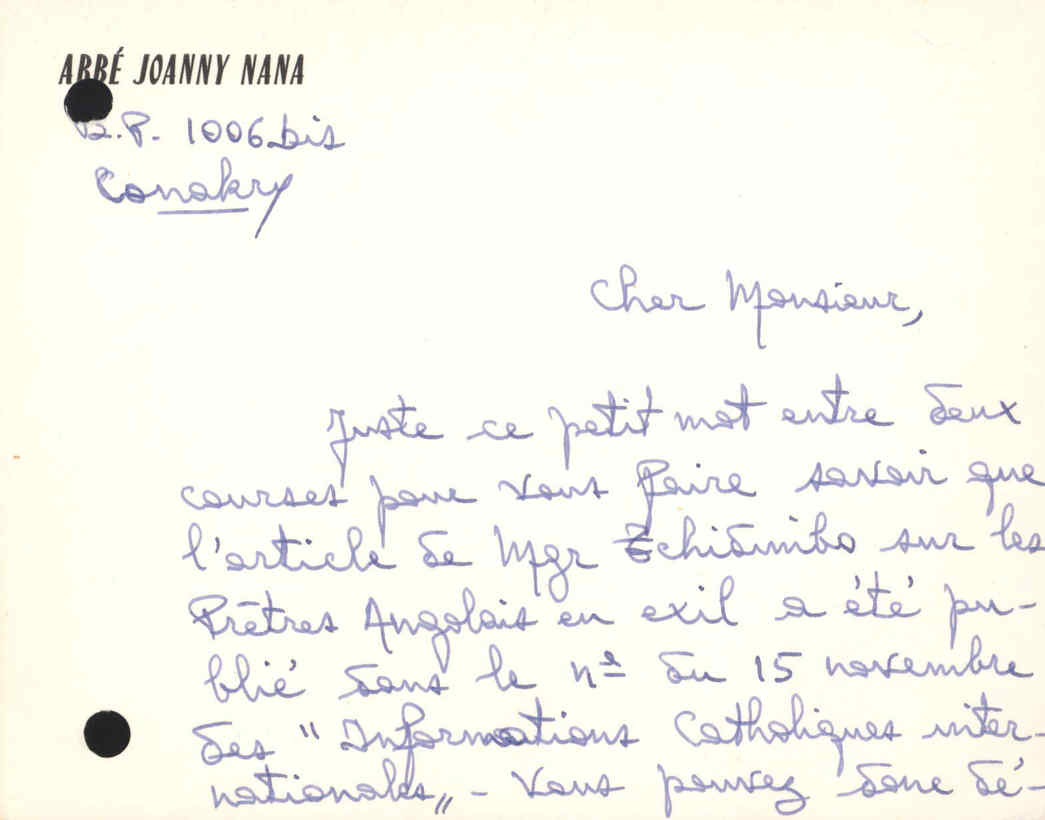 ABBÉ JOANNY NANA
B.P. 1006 bis
Conakry
Cher Monsieur,
Juste ce petit mot entre deux
courses pour vous faire savoir que
l'article de Mgr Tchidimbo sur les
Prêtres Angolais en exil a été pu-
blié dans le nº du 15 novembre
des "Informations Catholiques inter-
nationales" - Vous pouvez donc dé-